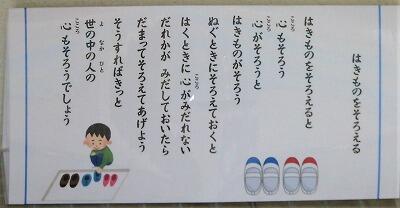 はきものをそろえる
はきものをそろえると
心もそろう
こころ
心がそろうと
こころ
はきものがそろう
ぬぐときにそろえておくと
はくときに心がみだれない
こころ
だれかが みだしておいたら
だまってそろえてあげよう
そうすればきっと
世の中の人の
よ なか ひと
心もそろうでしょう
こころ